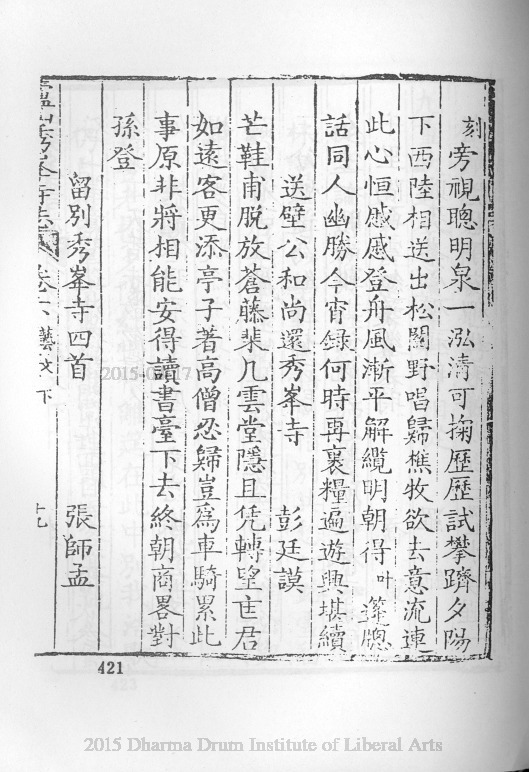 刻旁視聰明泉一泓清可掬歷歷試攀躋夕陽
下西陸相送出松關野唱歸樵牧欲去意流連
此心恒戚戚登舟風漸平解纜明朝得叶蓬牕
話同人幽勝今宵錄何時再裹糧遍遊興堪續
送璧公和尚還秀峯寺 彭廷謨
芒鞋甫脫放蒼藤棐几雲堂隱且凭轉望匡君
如遠客更添亭子著高僧忍歸豈為車騎累此
事原非將相能安得讀書臺下去終朝商畧對
孫登
留別秀峯寺四首 張師孟
秀峯寺志 卷六 藝文下 十九
421
2015 Dharma Drum Institute of Liberal Arts